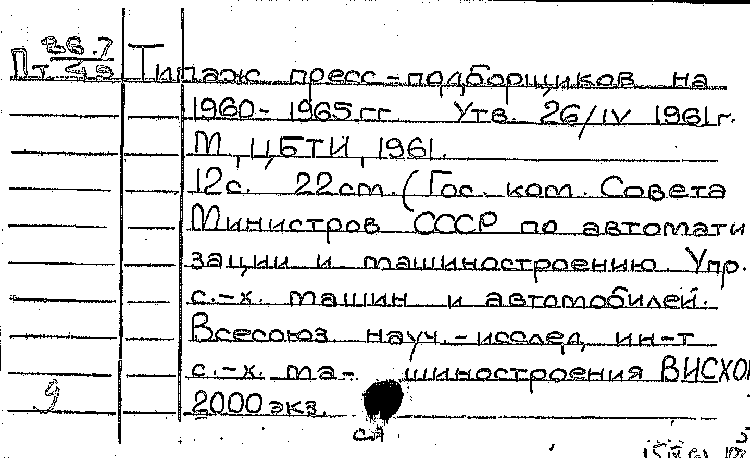 Пт 36.7 Типаж пресс-подборщиков на
1960-1965гг. Утв. 26/IV 1961г.
М, ЦБТИ, 1961.
12с. 22cm. (Гос. ком. Совета
Министров СССР по автомати
зации и машиностроению. Упр.
с.-х. машин и автомобилей.
Всесоюз науч.-исслед, ин-т
с.-х. ма- шиностроения ВИСХОМ
9 2000 экз.
сл